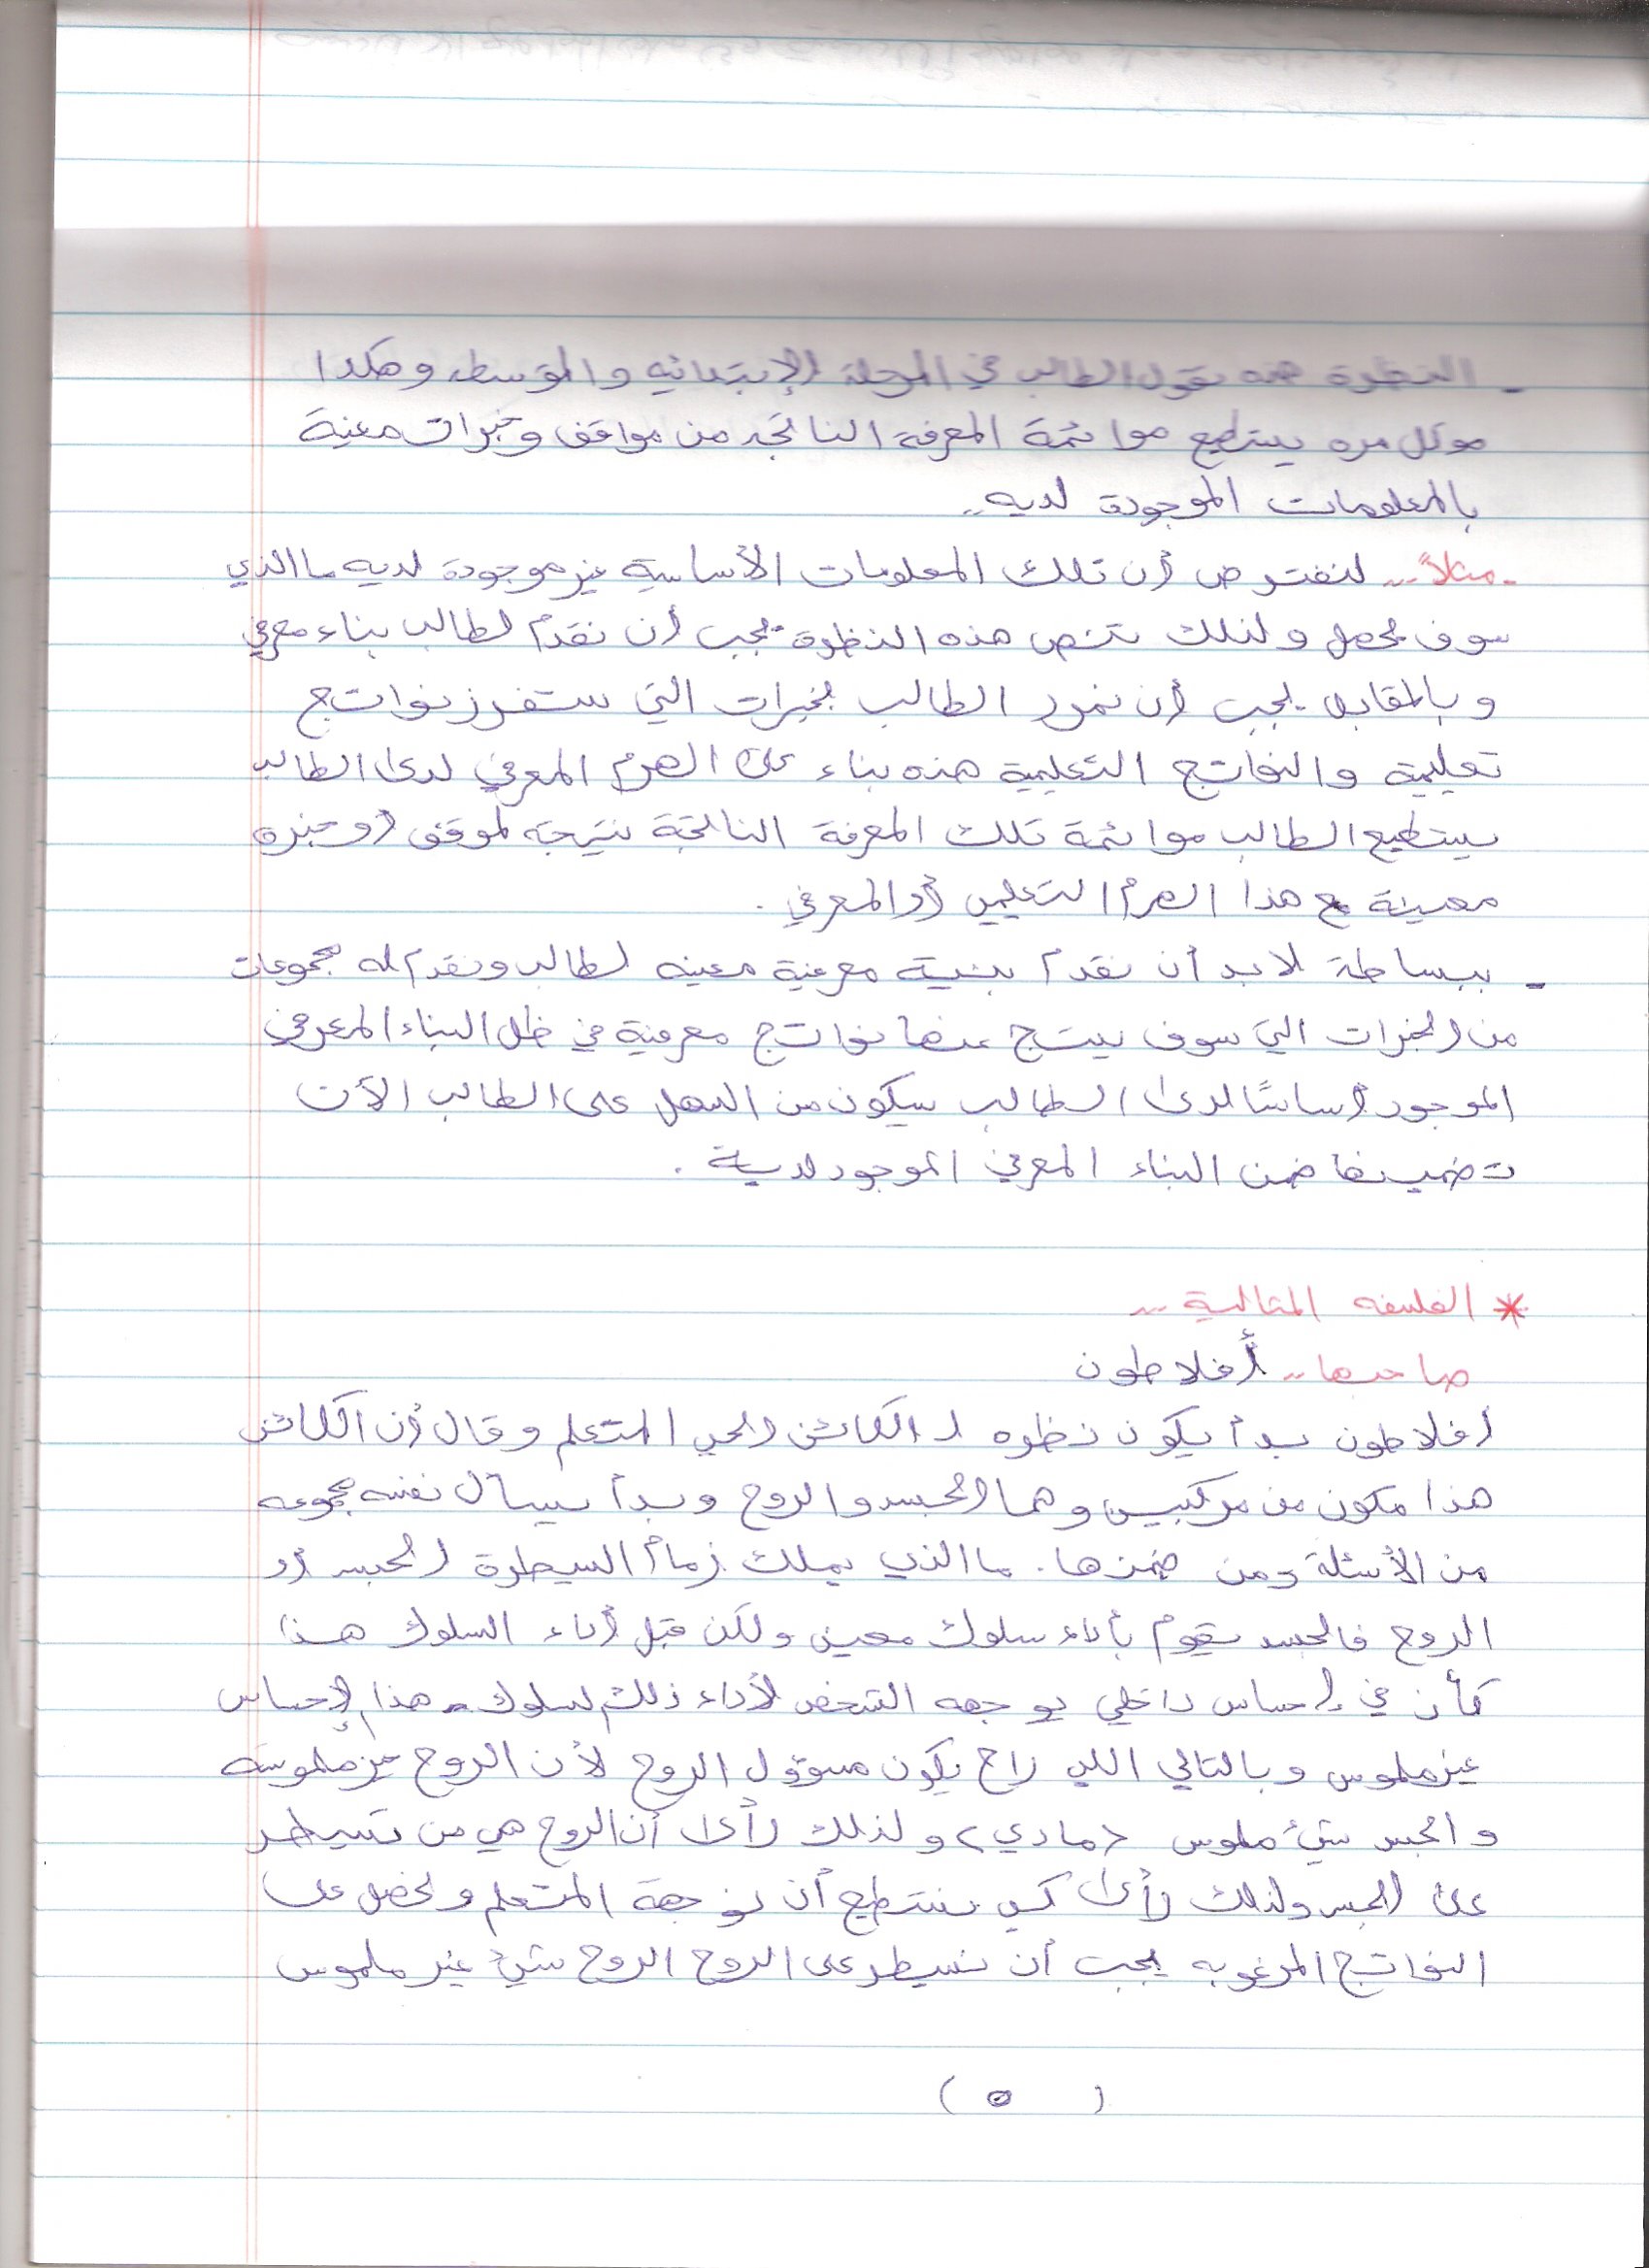 - النظرة هذه تقول الطالب في المرحلة الإبتدائيه والمتوسطه وهكذا
هو كل مره يستطيع موائمة المعرفة الناتجه من مواقف وخبرات معنية
بالمعلومات الموجودة لديه ..
- مثلاً ... لنفترض أن تلك المعلومات الأساسية غير موجودة لديه ما الذي
سوف يحصل ولذلك تنص هذه النظرة يجب أن نقدم لطالب بناء معرفي
وبالمقابل يجب أن نمرر الطالب بخبرات التي ستفرز نواتج
تعليمية والنواتج التعليمية هذه بناء على الهرم المعرفي لدى الطالب
يستطيع الطالب موائمة تلك المعرفة الناتجة نتيجة لموقف أو خبره
معينة مع هذا الهرم التعليمي أو المعرفي .
- ببساطة لابد أن نقدم بنية معرفية معينه لطالب ونقدم له مجموعات
من الخبرات التي سوف ينتج عنها نواتج معرفية في ظل البناء المعرفي
الموجود أساسًا لدى الطالب سيكون من السهل على الطالب الآن
تضمينها ضمن البناء المعرفي الموجود لدية .
* الفلسفه المثالية ...
صاحبها .. أفلاطون
أفلاطون بدأ يكون نظره لـ الكائن الحي المتعلم وقال أن الكائن
هذا مكون من مركبين وهما الجسد والروح وبدأ يسأل نفسه مجموعه
من الأسئلة ومن ضمنها . ما الذي يملك زمام السيطرة الجسد أو
الروح فالجسد يقوم بأداء سلوك معين ولكن قبل أداء السلوك هذا
كأن في إحساس داخلي يوجهه الشخص لأداء ذلك لسلوك هذا الإحساس
غير ملموس وبالتالي اللي راح يكون مسؤول الروح لأن الروح غير ملموسه
والجسد شيء ملموس (مادي) ولذلك رأى أن الروح هي من تسيطر
على الجسد ولذلك رأى كي نستطيع أن نوجهة المتعلم ونحصل على
النواتج المرغوبه يجب أن نسيطر على الروح الروح شيء غير ملموس
( ٥ )